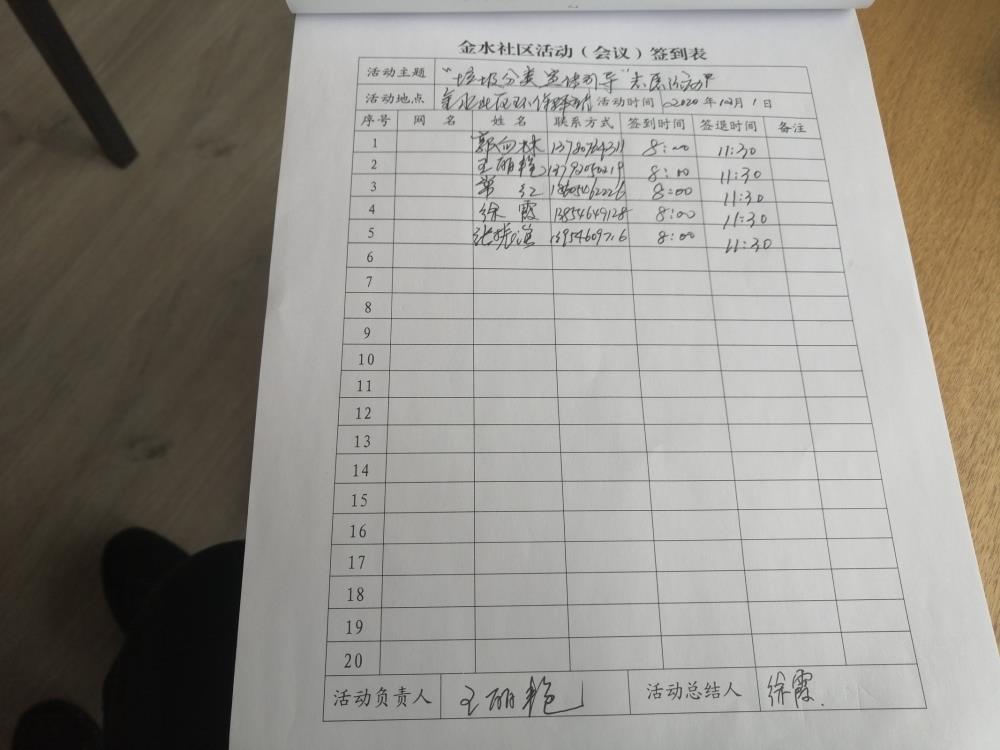 金水社区活动(会议)签到表
活动主题 "垃圾分类宣传引导"志愿活动
活动地点 金水社区环保驿站 活动时间 2020年12月1日
序号 网名 姓名 联系方式 签到时间 签退时间 备注
1 郭向林 8:00 11:30
2 王丽艳 13792050219 8:00 11:30
3 常红 8:00 11:30
4 徐霞 13854649128 8:00 11:30
5 13954609716 8:00 11:30
6
7
8
9
10
11
12
13
14
15
16
17
18
19
20
活动负责人 王丽艳 活动总结人 徐霞